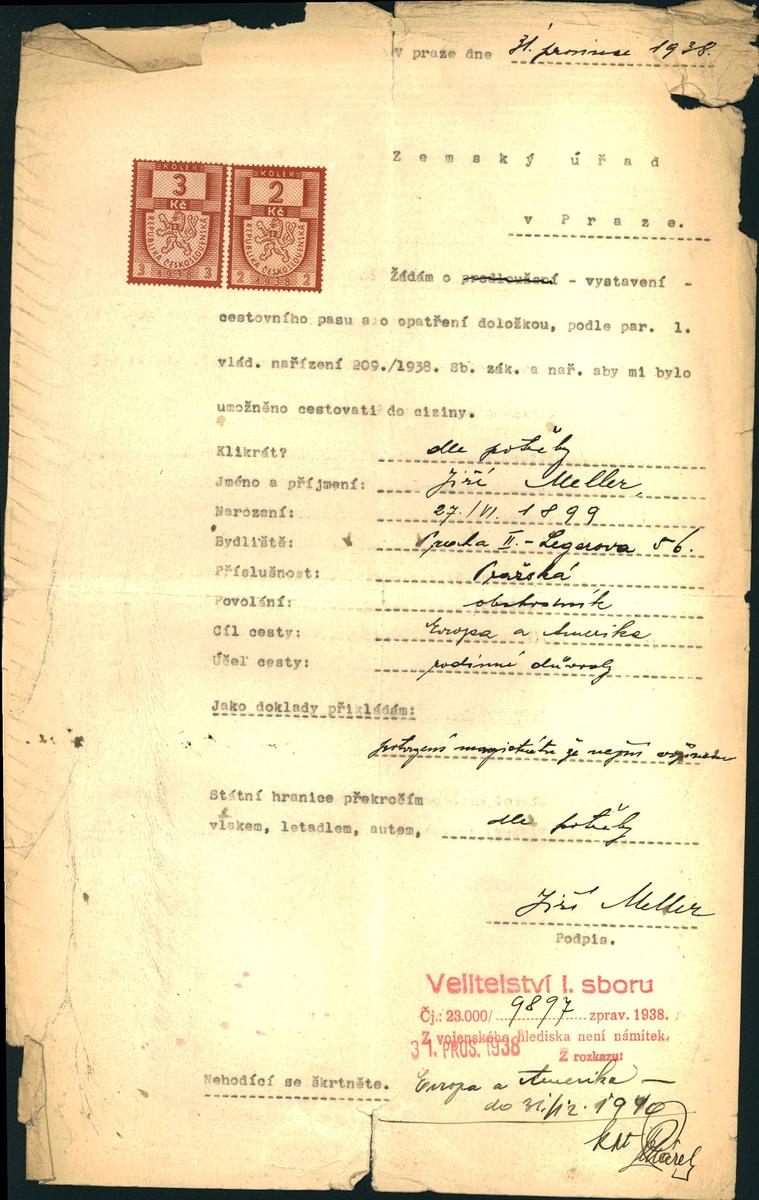 v praze dne 31. prosince 1938.
Zemský úřad
v Praze.
KOLEK
3
Kč
REPUBLIKA ČESKOSLOVENSKÁ
3 1938 3
KOLEK
2
Kč
REPUBLIKA ČESKOSLOVENSKÁ
2 1938 2
Žádám o prodloužení - vystavení -
cestovního pasu a o opatření doložkou, podle par. 1.
vlád. nařízení 209./1938. Sb. zák. a nař. aby mi bylo
umožněno cestovati do ciziny.
Klikrát? dle potřeby
Jméno a příjmení: Jiří Meller,
Narození: 27./VI. 1899
Bydliště: Praha II.- Legerova 56.
Příslušnost: Pražská
Povolání: obchodník
Cíl cesty: Evropa a Amerika
Účel cesty: rodinné důvody
Jako doklady přikládám:
potvrzení magistrátu že nejsi
Státní hranice překročím
vlakem, letadlem, autem, dle potřeby
Jiří Meller
Podpis.
Velitelství I. sboru
Čj.: 23.000/ 9897 zprav. 1938.
Z vojenského hlediska není námitek.
31. PROS. 1938
Z rozkazu:
Nehodící se škrtněte.
Evropa a Amerika —
do 31./12. 1940